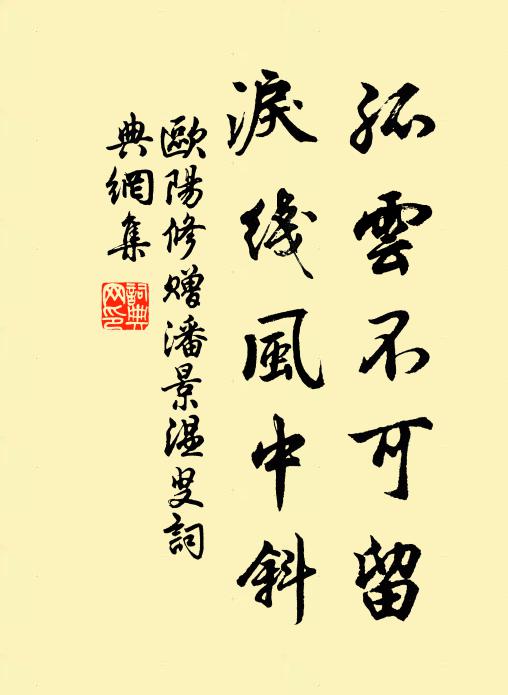 孤雲不可留
淚綫風中斜
歐陽修贈潘景溫叟詞
典網集
詞典网印